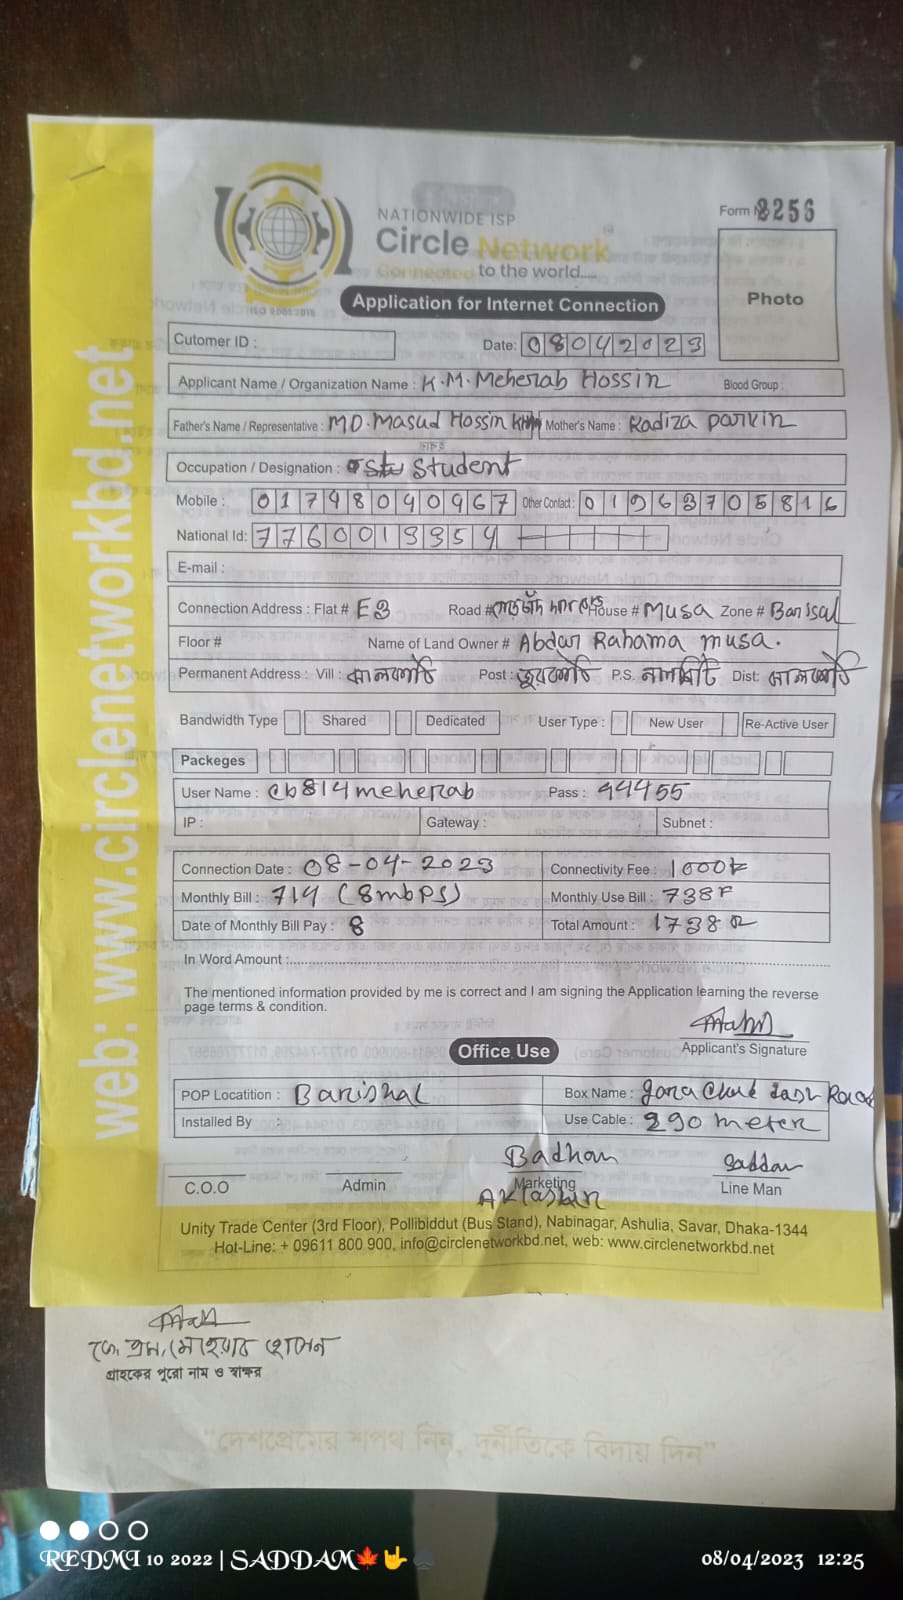 NATIONWIDE ISP
Circle Network
Connected to the world....
ISO 9001:2015
Form N 8256
Application for Internet Connection
Photo
Cutomer ID :
Date: 08042023
Applicant Name / Organization Name : K.M. Meherab Hossin Blood Group :
Father's Name / Representative : MD. Masud Hossin Mother's Name : Radiza Parvin
Occupation / Designation : Student
Mobile : 01748040967 Other Contact : 01963705816
National Id: 7760013354
E-mail :
Connection Address : Flat # E3 Road # House # Musa Zone # Barisal
Floor # Name of Land Owner # Abdur Rahama musa.
Permanent Address : Vill : ঝালকাঠি Post : P.S. Dist: ঝালকাঠি
Bandwidth Type Shared Dedicated User Type : New User Re-Active User
Packeges
User Name : cb814meherab Pass : 44455
IP : Gateway : Subnet :
Connection Date : 08-04-2023 Connectivity Fee : 1000
Monthly Bill : 714 (8mbps) Monthly Use Bill : 738
Date of Monthly Bill Pay : 8 Total Amount : 1738
In Word Amount :
The mentioned information provided by me is correct and I am signing the Application learning the reverse
page terms & condition.
Applicant's Signature
Office Use
POP Locatition : Barishal Box Name : Road
Installed By : Use Cable : 290 meter
Badhan Saddam
C.O.O Admin Marketing Line Man
Unity Trade Center (3rd Floor), Pollibiddut (Bus Stand), Nabinagar, Ashulia, Savar, Dhaka-1344
Hot-Line: + 09611 800 900, info@circlenetworkbd.net, web: www.circlenetworkbd.net
web: www.circlenetworkbd.net
কে, এম, মেহেরাব হোসেন
গ্রাহকের পুরো নাম ও স্বাক্ষর
"দেশপ্রেমের শপথ নিন, দুর্নীতিকে বিদায় দিন"
REDMI 10 2022 | SADDAM🍁🤟♠ 08/04/2023 12:25